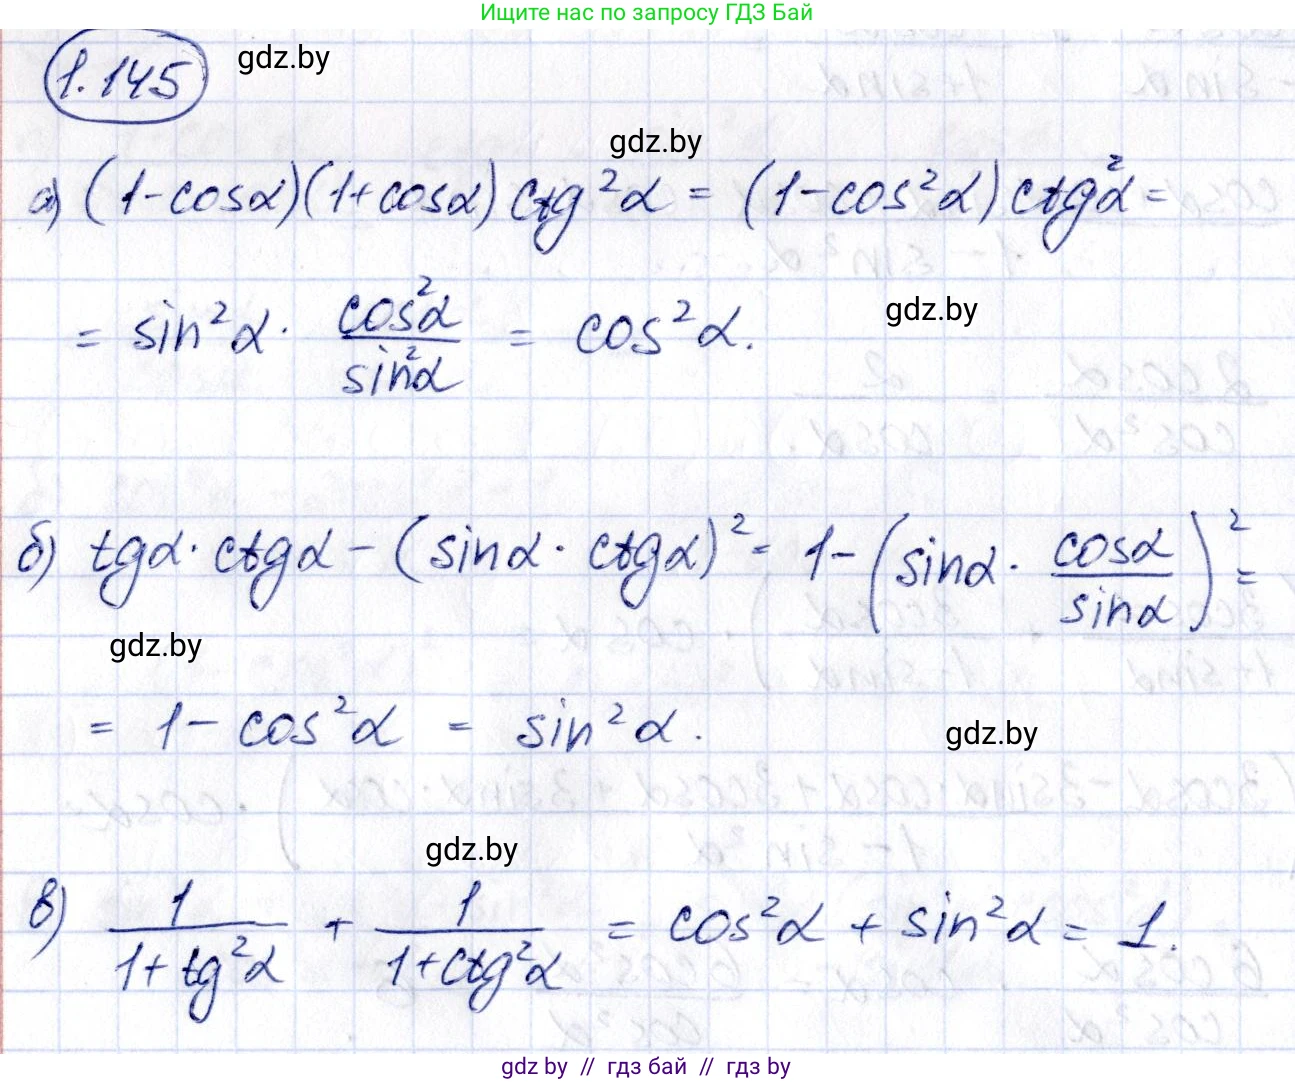 Ищите нас по запросу ГДЗ Бай
1.145 gdz.by
gdz.by
а) (1-cosα)(1+cosα) ctg²α = (1-cos²α) ctg²α =
= sin²α · cos²α/sin²α = cos²α. gdz.by
б) tgα · ctgα - (sinα · ctgα)² = 1 - (sinα · cosα/sinα)² =
gdz.by
= 1 - cos²α = sin²α. gdz.by
gdz.by
в) 1/(1+tg²α) + 1/(1+ctg²α) = cos²α + sin²α = 1.
gdz by // гдз бай // gdz by